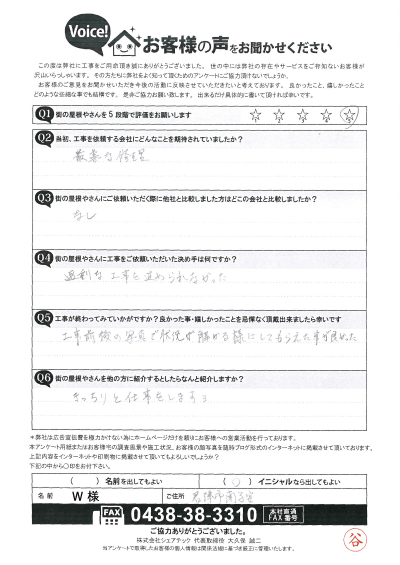 Voice!
お客様の声をお聞かせください
この度は弊社に工事をご用命頂き誠にありがとうございました。世の中には弊社の存在やサービスをご存知ないお客様が
沢山いらっしゃいます。その方たちに弊社をよく知って頂くためのアンケートにご協力頂けないでしょうか。
お客様のご意見をお聞かせいただき今後の活動に反映させていただきたいと考えております。良かったこと、嬉しかったこと
どのような些細な事でも結構です。是非ご協力お願い致します。出来るだけ具体的に書いて頂ければ幸いです。
Q1 街の屋根やさんを5段階で評価をお願いします
☆ ☆ ☆ ☆ ☆
Q2 当初、工事を依頼する会社にどんなことを期待されていましたか?
Q3 街の屋根やさんにご依頼いただく際に他社と比較しました方はどこの会社と比較しましたか?
なし
Q4 街の屋根やさんに工事をご依頼いただいた決め手は何ですか?
過剰な工事を進められなかった
Q5 工事が終わってみていかがですか?良かった事・嬉しかったことを忌憚なく頂戴出来ましたら幸いです
工事前後の写真で状況が解かる様にしてもらえた事が良かった
Q6 街の屋根やさんを他の方に紹介するとしたらなんと紹介しますか?
きっちりと仕事をしますョ
*弊社は広告宣伝費を極力かけない為にホームページだけを頼りにお客様への営業活動を行っております。
本アンケート用紙またはお客様宅の調査風景や施工状況、お客様の顔写真を随時ブログ形式のインターネットに掲載させて頂いております。
上記内容をインターネットや印刷物に掲載させて頂いてもよろしいでしょうか?
下記の中から〇印をお付け下さい。
( ) 名前を出してもよい
(〇) イニシャルなら出してもよい
名前 W様 ご住所
FAX 0438-38-3310 本社直通 FAX番号
ご協力ありがとうございました。
株式会社シェアテック 代表取締役 大久保 誠二
当アンケートで取得したお客様の個人情報は関係法規に基づき厳正に管理いたします。
谷